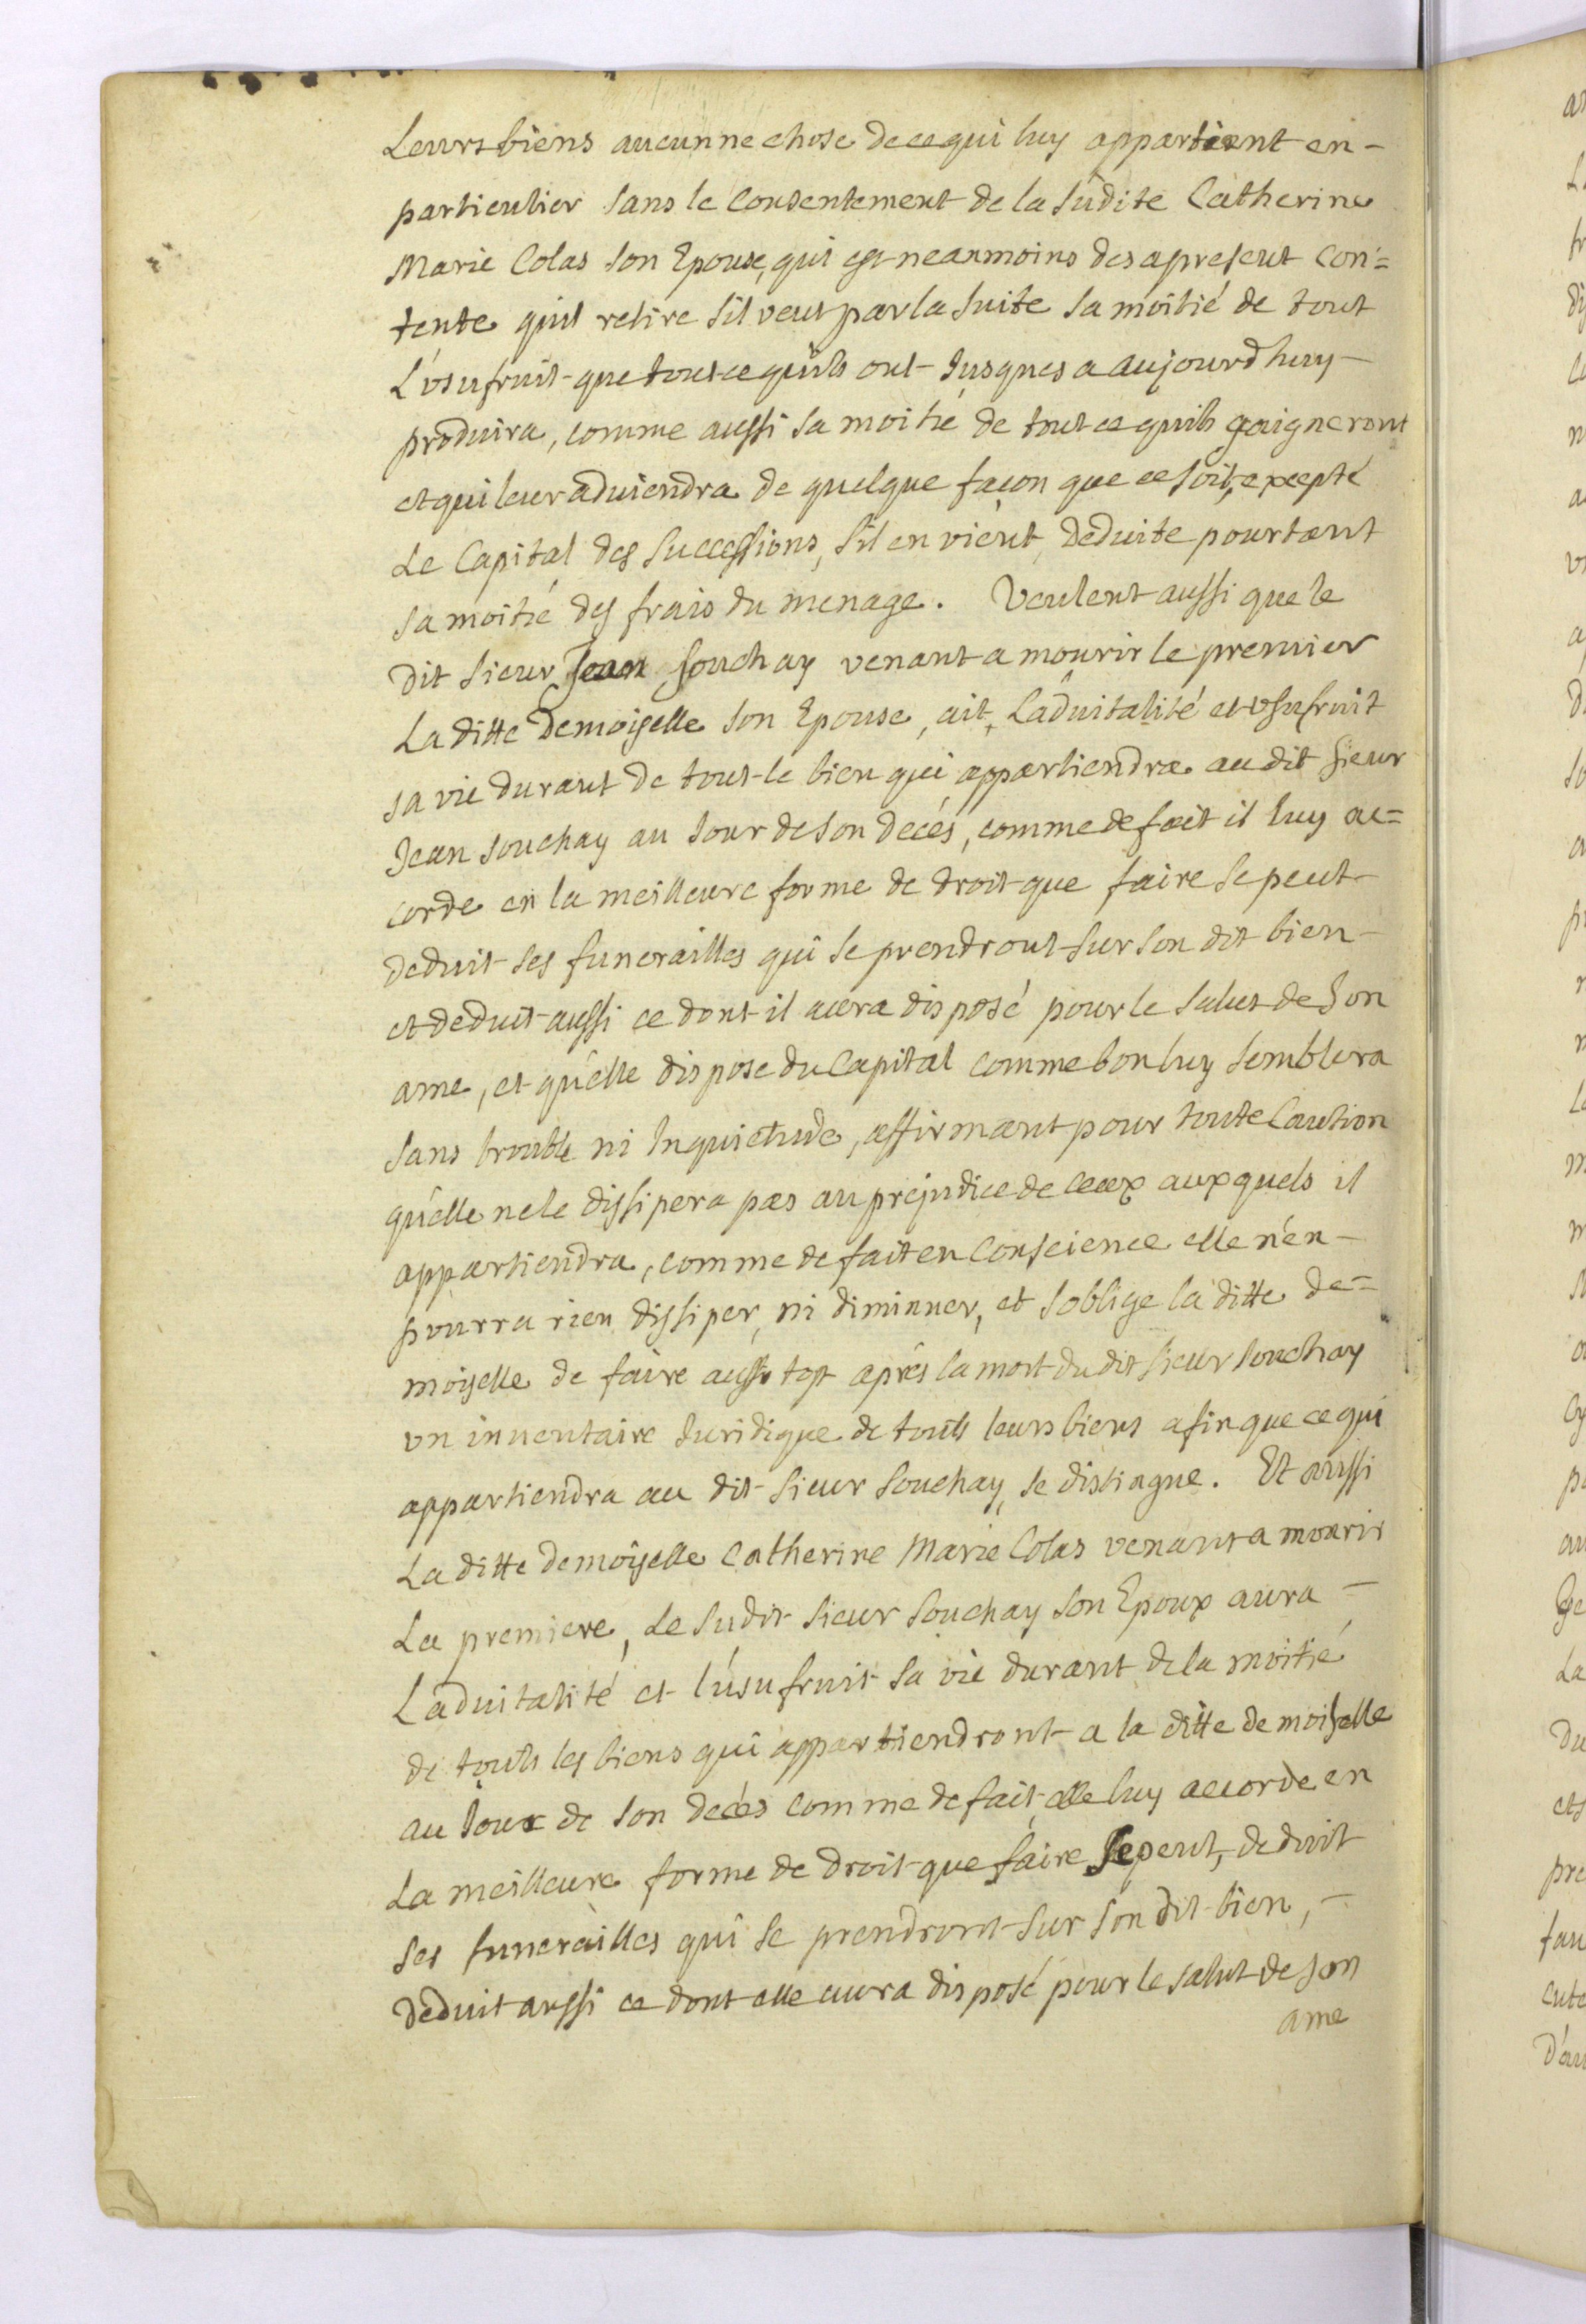 Leurs biens aucunne chose de ce qui luy appartient en-
particulier sans le Consentement de la sudite Catherine
Marie Colas son Epouse, qui est neanmoins des apresent Con=
tente qu'il retire s'il veut par la suite sa moitié de tout
L'vsufruit que tout ce qu'ils ont Jusques a aujourd huy-
produira, comme aussi sa moitié de tout ce quils gaigneront
et qui leur aduiendra de quelque façon que ce soit, excepté
Le Capital des Successions, s'il en vient, deduite pourtant
sa moitié des frais du menage. Veulent aussi que le
dit sieur Jean Souchay venant a mourir le premier
La ditte Demoiselle son Epouse, ait, Laduitalité et vsufruit
sa vie durant de tout le bien qui appartiendra au dit sieur
Jean Souchay au Jour de son decés, comme de fait il luy ac=
corde en la meilleure forme de droit que faire se peut-
deduit ses funerailles qui se prendront sur son dit bien-
et deduit aussi ce dont il aura disposé pour le salut de son
ame, et qu'elle dispose du Capital comme bon luy semblera
sans trouble ni Inquietude, affirmant pour toute Caution
qu'elle ne le dissipera pas au prejudice de Ceux auxquels il
appartiendra, comme de fait en Conscience elle n'en-
pourra rien dissiper, ni diminuer, et s'oblige la ditte de=
moiselle de faire aussi tost aprés la mort du dit sieur Souchay
vn inuentaire Juridique de touts leurs biens afin que ce qui
appartiendra au dit sieur Souchay, se distingue. Et aussi
La ditte demoiselle Catherine Marie Colas venant a mourir
La premiere, Le sudit sieur Souchay son Epoux aura-
Laduitalité et l'usufruit sa vie durant de la moitié
de touts les biens qui appartiendront a la ditte demoiselle
au Jour de son decés comme de fait, elle luy accorde en
La meilleure forme de droit que faire se peut, deduit
ses funerailles qui se prendront sur son dit bien,-
deduit aussi ce dont elle aura disposé pour le salut de son
ame